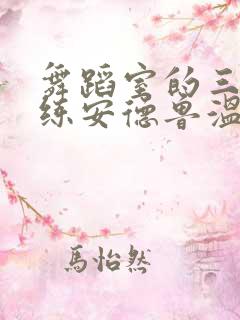 舞蹈室的三
练安德鲁温
馬怡然